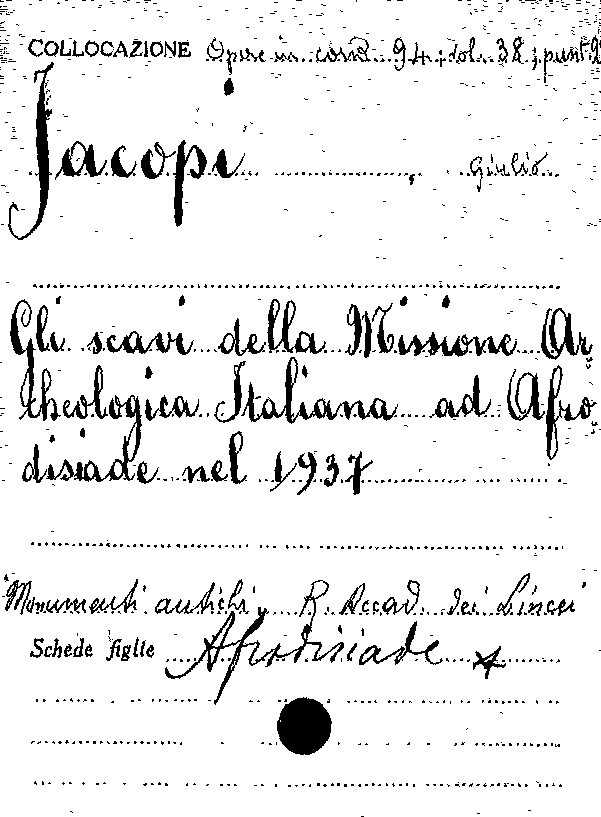 COLLOCAZIONE Opere in cont. 94; vol. 38; punt.
Jacopi, Giulio
Gli scavi della Missione Ar-
cheologica Italiana ad Afro-
disiade nel 1937
"Monumenti antichi" R. Accad. dei Lincei
Schede figlie Afrodisiade